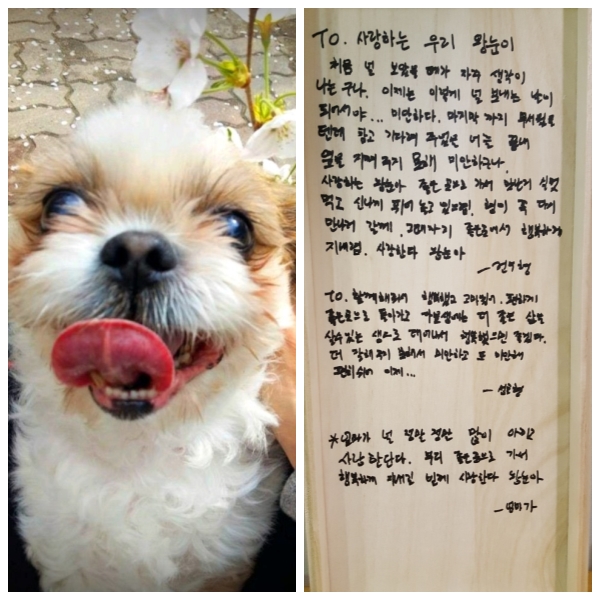 TO. 사랑하는 우리 왕눈이
처음 널 보았을 때가 자꾸 생각이
나는구나. 이제는 이렇게 널 보내는 날이
되어서야... 미안하다. 마지막까지 무서웠을
텐데 참고 기다려 주었는 너를 끝내
못해 미안하구나.
사랑하는 왕눈아 좋은곳으로 가서 맛난거 실컷
먹고 신나게 뛰어 놀고 있으렴. 형이 꼭 다시
만나러 갈께. 그때까지 좋은곳에서 행복하게
지내렴. 사랑한다 왕눈아
형
TO. 함께해줘서 행복했고 고마웠어. 편하게
좋은곳으로 돌아가고 다음생에는 더 좋은 삶을
살수있는 생으로 태어나서 행복했으면 좋겠다.
더 잘해주지 못해서 미안하고 또 미안해
편히쉬어 이제...
형
*엄마가 널 정말 정말 많이 아끼고
사랑한단다. 부디 좋은곳으로 가서
행복하게 지내길 사랑한다 왕눈아
-엄마가